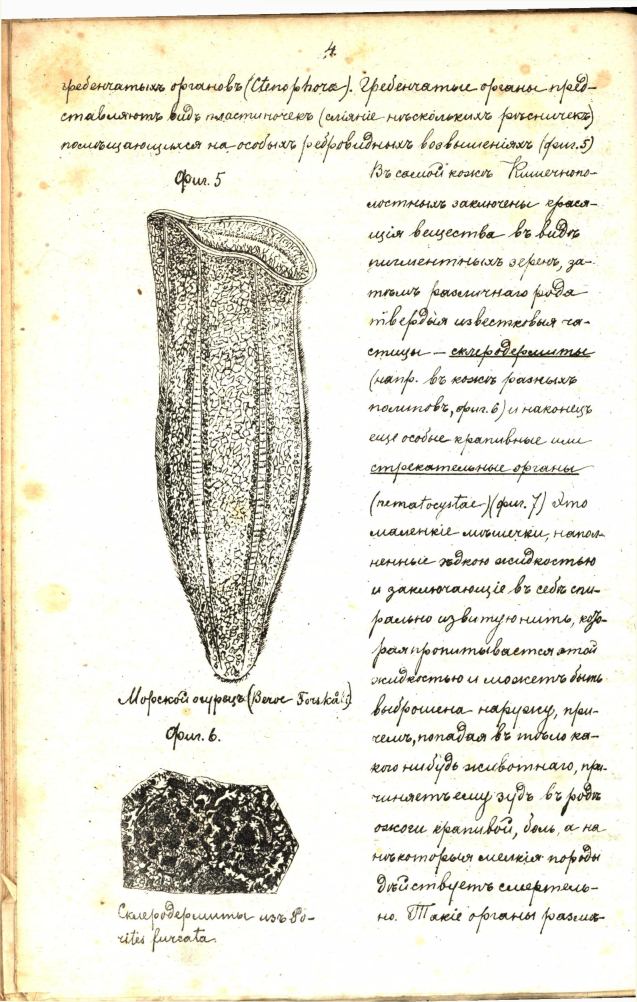 4.
гребенчатыхъ органовъ (Ctenophora). Гребенчатые органы пред-
ставляютъ видъ пластиночекъ (слiянiе нѣсколькихъ рѣсничекъ)
помѣщающихся на особыхъ ребровидныхъ возвышенiяхъ (фиг. 5)
Фиг. 5
Морской огурецъ (Beroe Forskålii)
Фиг. 6.
Склеродермиты изъ Po-
rites furcata.
Въ самой кожѣ Кишечнопо-
лостныхъ заключены крася-
щiя вещества въ видѣ
пигментныхъ зеренъ, за-
тѣмъ различнаго рода
твердыя известковыя ча-
стицы — склеродермиты
(напр. въ кожѣ разныхъ
полиповъ, фиг. 6) и наконецъ
еще особые крапивные или
стрекательные органы
(nematocystae) (фиг. 7) Это
маленкiе мѣшечки, напол-
ненные ѣдкою жидкостью
и заключающiе въ себѣ спи-
рально извитую нить, кото-
рая пропитывается этой
жидкостью и можетъ быть
выброшена наружу, при-
чемъ, попадая въ тѣло ка-
кого нибудь животнаго, при-
чиняетъ ему зудъ въ родѣ
ожоги крапивой, боль, а на
нѣкоторыя мелкiя породы
дѣйствуетъ смертель-
но. Такiе органы размѣ-